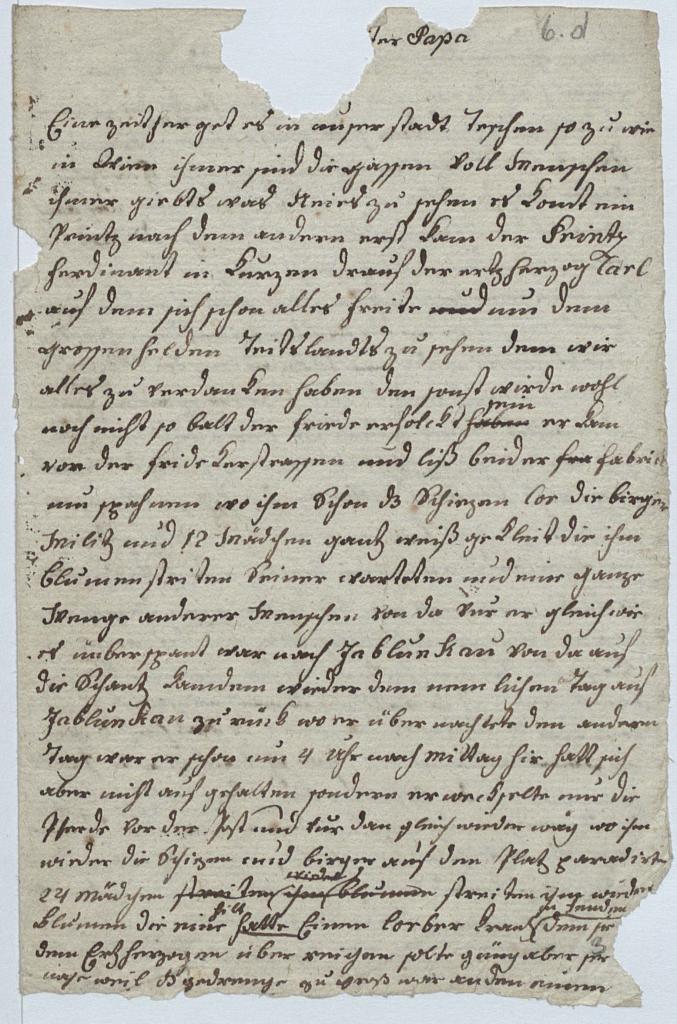 ter Papa
6. d
Eine zeither get es in unser stadt Teschen so zu wie
in Wien ihmer sind die gassen voll Menschen
ihmer giebts was Neies zu sehen es komt ein
Printz nach dem andern erst kam der Printz
ferdinant in kurzen drauf der ertzherzog Carl
auf dem sich schon alles freite und um dem
grossen helden Teitslandts zu sehen dem wir
alles zu verdancken haben den sonst wirde wohl
noch nicht so balt der friede erfolckt haben sein er kam
von der fridekerstrassen und liß bei der fra fabrick
um spahnen wo ihm Schon d3 Schiezen Cor die birger
Militz und 12 Mädchen gantz weiß gekleit die ihm
blumen streiten Seiner warteten und eine ganze
Menge anderer Menschen von da fur er gleich wie
es umberspant war nach Jablunkau von da auf
die Schantz kam dem wieder dem nemlichen Tag auf
Jablunkau zurück wo er über nachtete den andern
Tag war er schon um 4 Uhr nach mittag hir hatt sich
aber nicht auf gehalten sondern er weckselte nur die
Pferde vor der Post und fur dan gleich wieder wäg wo ihm
wieder die Schizen und birger auf den Platz paradirten
24 Mädchen streiten ihm blumen streiten ihm wieder
blumen die eine hilt hatte Einen lorber kranz in henden dem sie
dem Ertzherzogen über reigen solte gieng aber
weil d3 gedrenge zu groß war an den einen